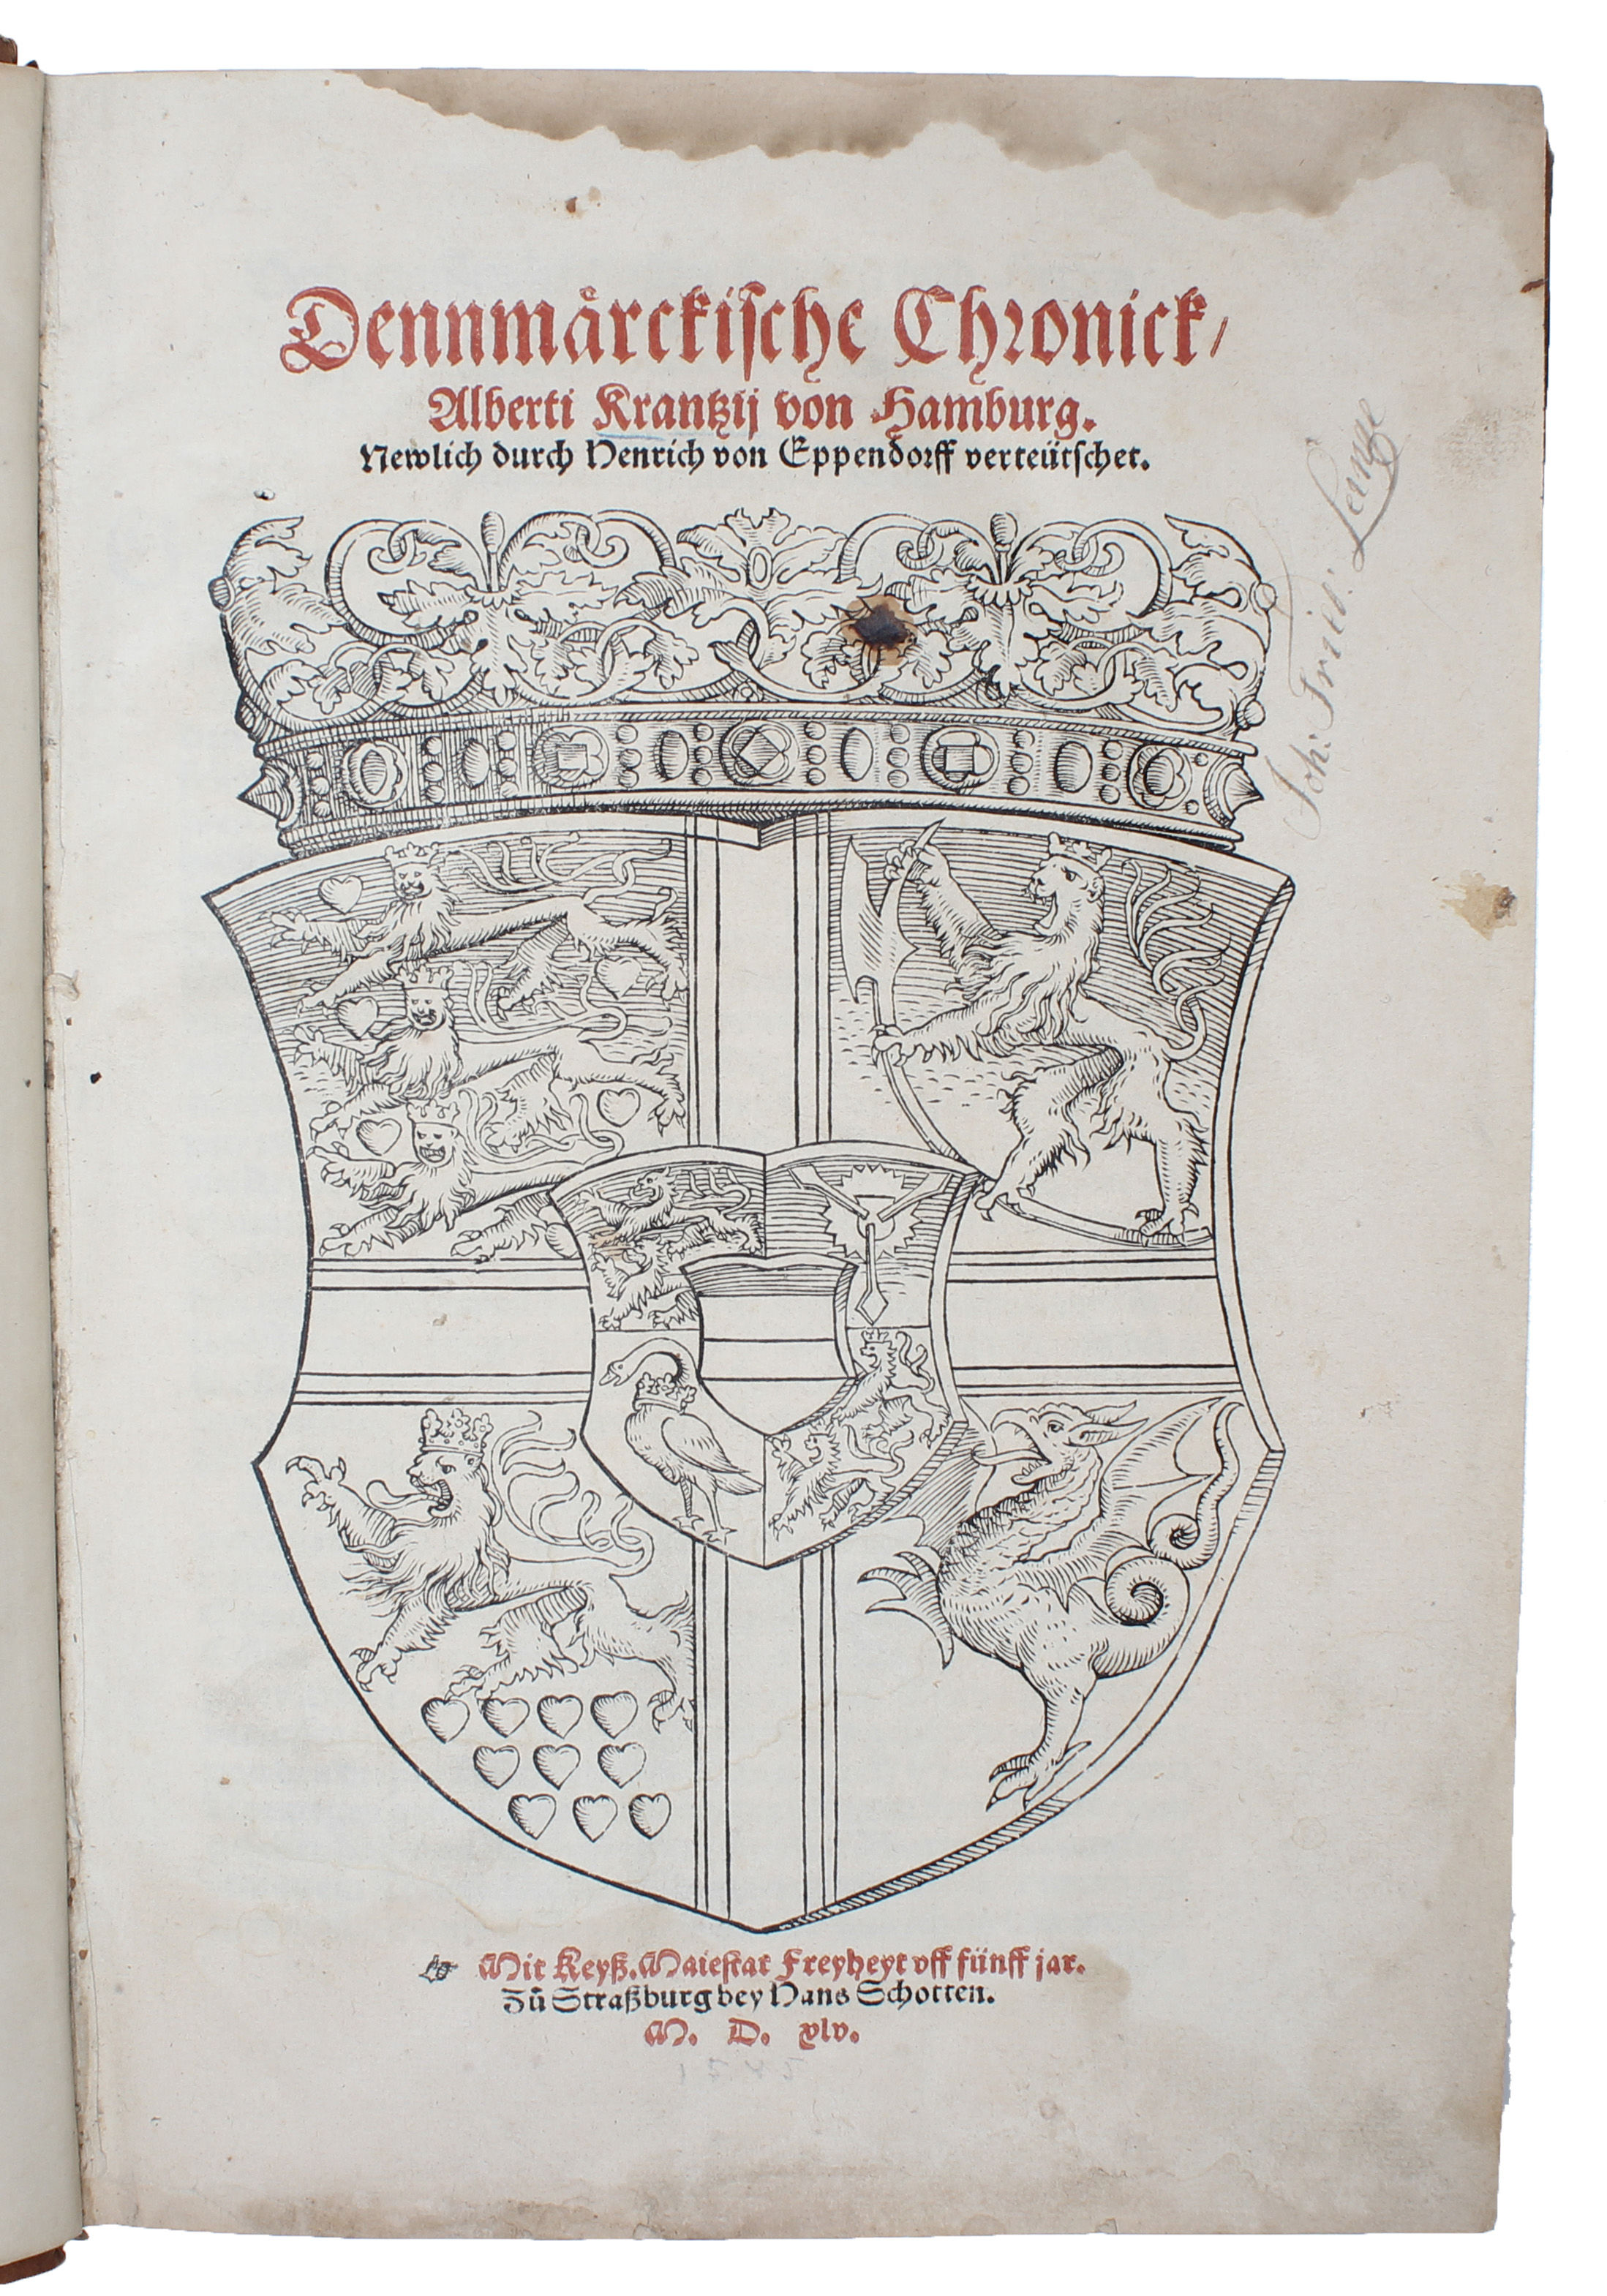 Dennmårckische Chronick/
Alberti Krantzij von Hamburg.
Newlich durch Henrich von Eppendorff verteütschet.
Joh: Fried: Lange
Mit Keyß. Maiestat Freyheyt vff fünff jar.
Zů Straßburg bey Hans Schotten.
M. D. xlv.